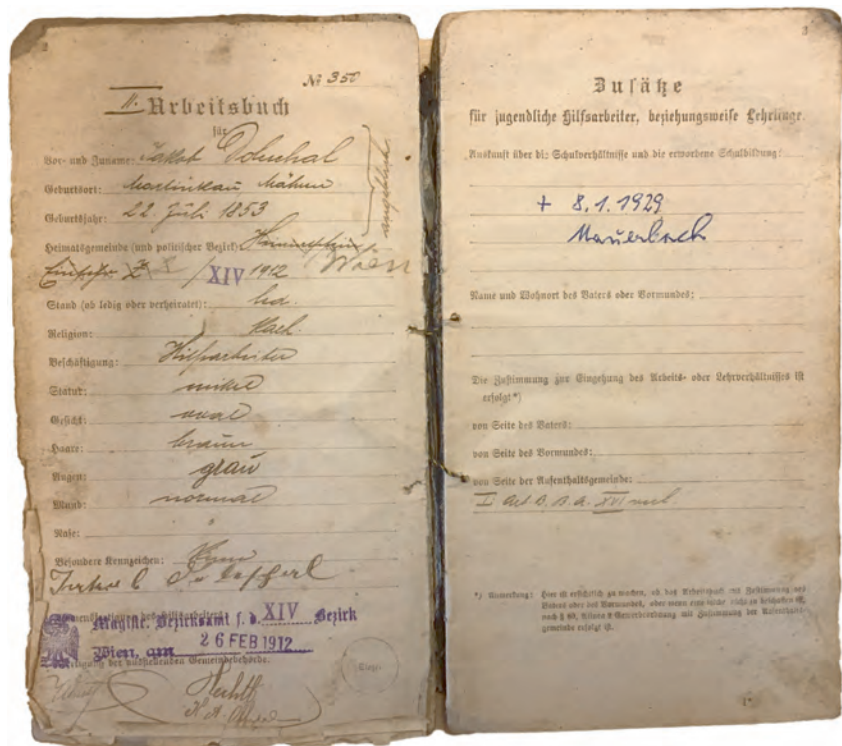 2
№ 350
II. Arbeitsbuch
für
Vor- und Zuname: Jakob Doleschal
Geburtsort: Martinkau, Mähren
angeblich
Geburtsjahr: 22. Juli 1853
Heimatsgemeinde (und politischer Bezirk):
Wien
XIV 1912
Stand (ob ledig oder verheiratet): led.
Religion: kath.
Beschäftigung: Hilfsarbeiter
Statur: mittel
Gesicht: oval
Haare: braun
Augen: grau
Mund: normal
Nase: "
Besondere Kennzeichen: Keine
des Hilfsarbeiters
Magistr. Bezirksamt f. d. XIV Bezirk
Wien, am 26 FEB 1912
Fertigung der ausstellenden Gemeindebehörde.
Siegel
3
Zusätze
für jugendliche Hilfsarbeiter, beziehungsweise Lehrlinge.
Auskunft über die Schulverhältnisse und die erworbene Schulbildung:
+ 8.1.1929
Mauerbach
Name und Wohnort des Vaters oder Vormundes:
Die Zustimmung zur Eingehung des Arbeits- oder Lehrverhältnisses ist
erfolgt*)
von Seite des Vaters:
von Seite des Vormundes:
von Seite der Aufenthaltsgemeinde:
I. B. A. XVI
*) Anmerkung: Hier ist ersichtlich zu machen, ob das Arbeitsbuch mit Zustimmung des
Vaters oder des Vormundes, oder wenn eine solche nicht zu beschaffen ist,
nach § 80, Alinea 2 Gewerbeordnung mit Zustimmung der Aufenthalts-
gemeinde erfolgt ist.
1*